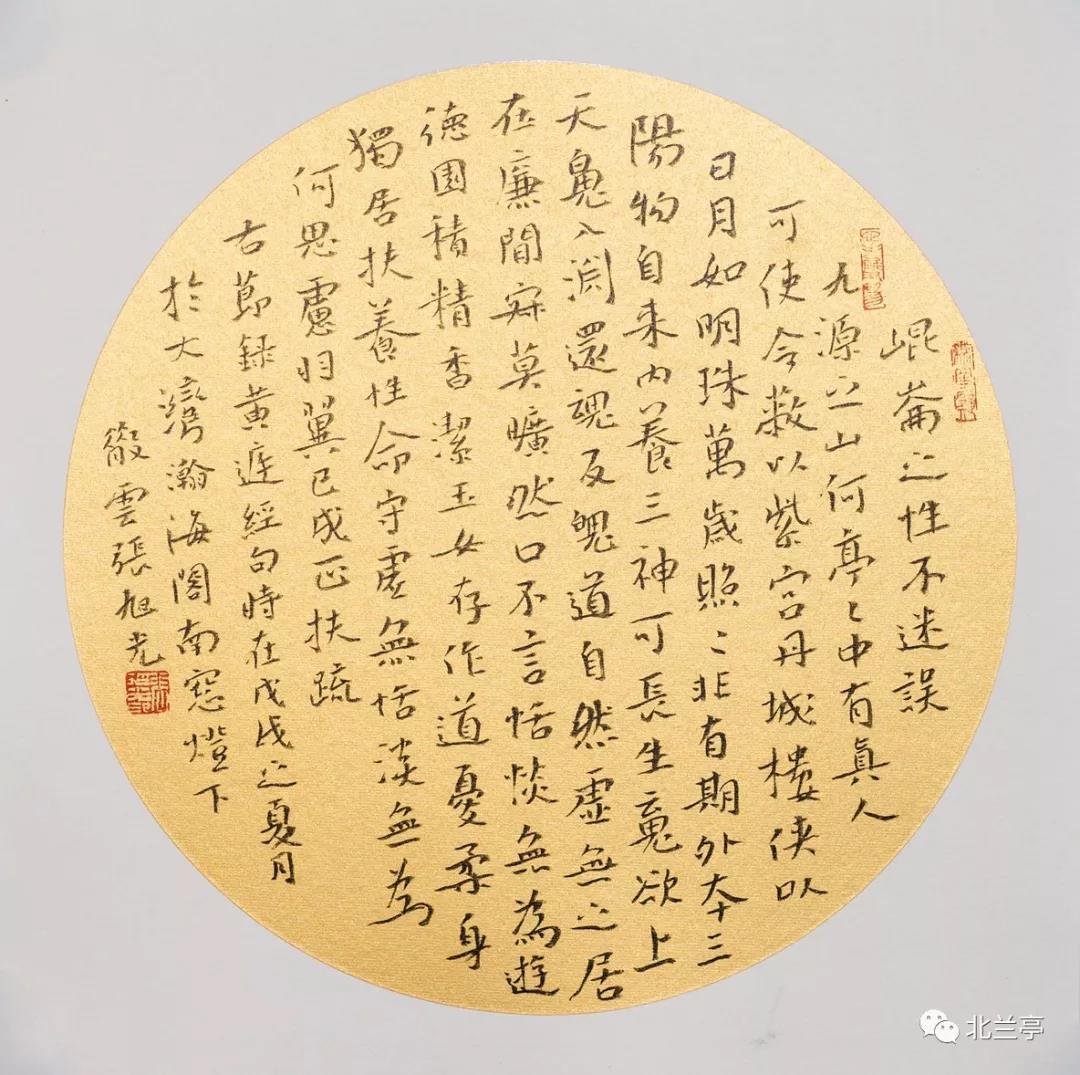 崐崙之性不迷誤
九源之山何亭〻中有眞人
可使令蔽以紫宫丹城樓俠以
日月如明珠萬歲照〻非有期外本三
陽物自来内養三神可長生䰟欲上
天䰟入淵還魂反魄道自然虛無之居
在廉間寂莫曠然口不言恬惔無為遊
德園積精香潔玉女存作道憂柔身
獨居扶養性命守虛無恬淡無為
何思慮羽翼已成正扶疏
古莭録黄庭經句時在戊戌之夏月
於大㵎瀚海閣南窓燈下
散雲張旭光
北兰亭